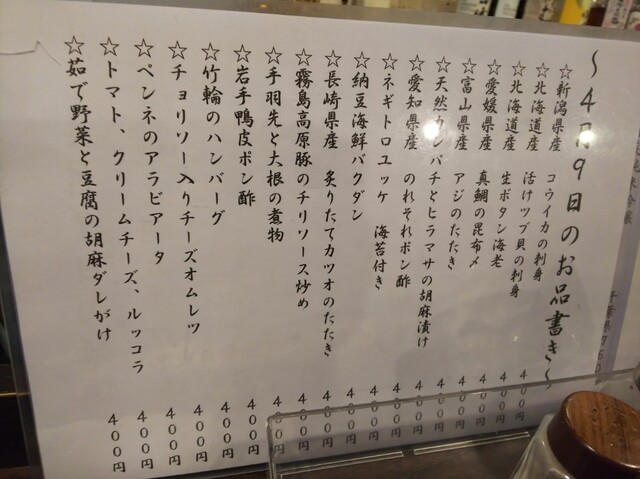 ～4月9日のお品書き～
☆新潟県産 コウイカの刺身 400円
☆北海道産 活けツブ貝の刺身 400円
☆北海道産 生ボタン海老 400円
☆愛媛県産 真鯛の昆布〆 400円
☆富山県産 アジのたたき 400円
☆天然カンパチとヒラマサの胡麻漬け 400円
☆愛知県産 のれそれポン酢 400円
☆ネギトロユッケ 海苔付き 400円
☆納豆海鮮バクダン 400円
☆長崎県産 炙りたてカツオのたたき 400円
☆霧島高原豚のチリソース炒め 400円
☆手羽先と大根の煮物 400円
☆岩手鴨皮ポン酢 400円
☆竹輪のハンバーグ 400円
☆チョリソー入りチーズオムレツ 400円
☆ペンネのアラビアータ 400円
☆トマト、クリームチーズ、ルッコラ 400円
☆茹で野菜と豆腐の胡麻ダレがけ 400円